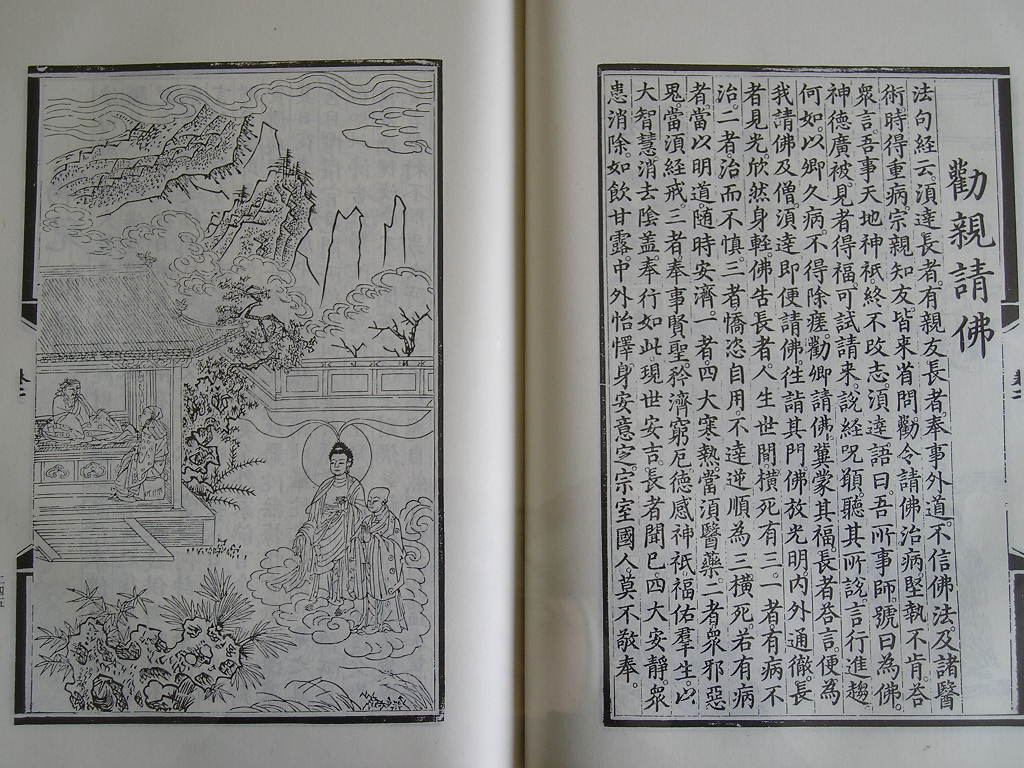 勸親請佛
法句經云。湏達長者。有親友長者。奉事外道。不信佛法及諸醫
術。時得重病。宗親知友。皆來省問。勸令請佛治病。堅執不肯。荅
衆言。吾事天地神祇。終不改志。湏達語曰。吾所事師。號曰為佛。
神德廣被。見者得福。可試請來。說經呪願。聽其所說。言行進趨
何如。以卿久病。不得除瘥。勸卿請佛。冀蒙其福。長者荅言。便為
我請佛及僧。湏達即便請佛。徃詣其門。佛放光明。內外通徹。長
者見光。欣然身輕。佛告長者。人生世間。橫死有三。一者有病不
治。二者治而不慎。三者憍恣自用。不達逆順。為三橫死。若有病
者。當以明道。随時安濟。一者四大寒熱。當湏醫藥。二者衆邪惡
鬼。當湏經戒。三者奉事賢聖。矜濟窮厄。德感神祇。福佑羣生。以
大智慧。消去陰蓋。奉行如此。現世安吉。長者聞已。四大安靜。衆
患消除。如飲甘露。中外怡懌。身安意定。宗室國人。莫不敬奉。